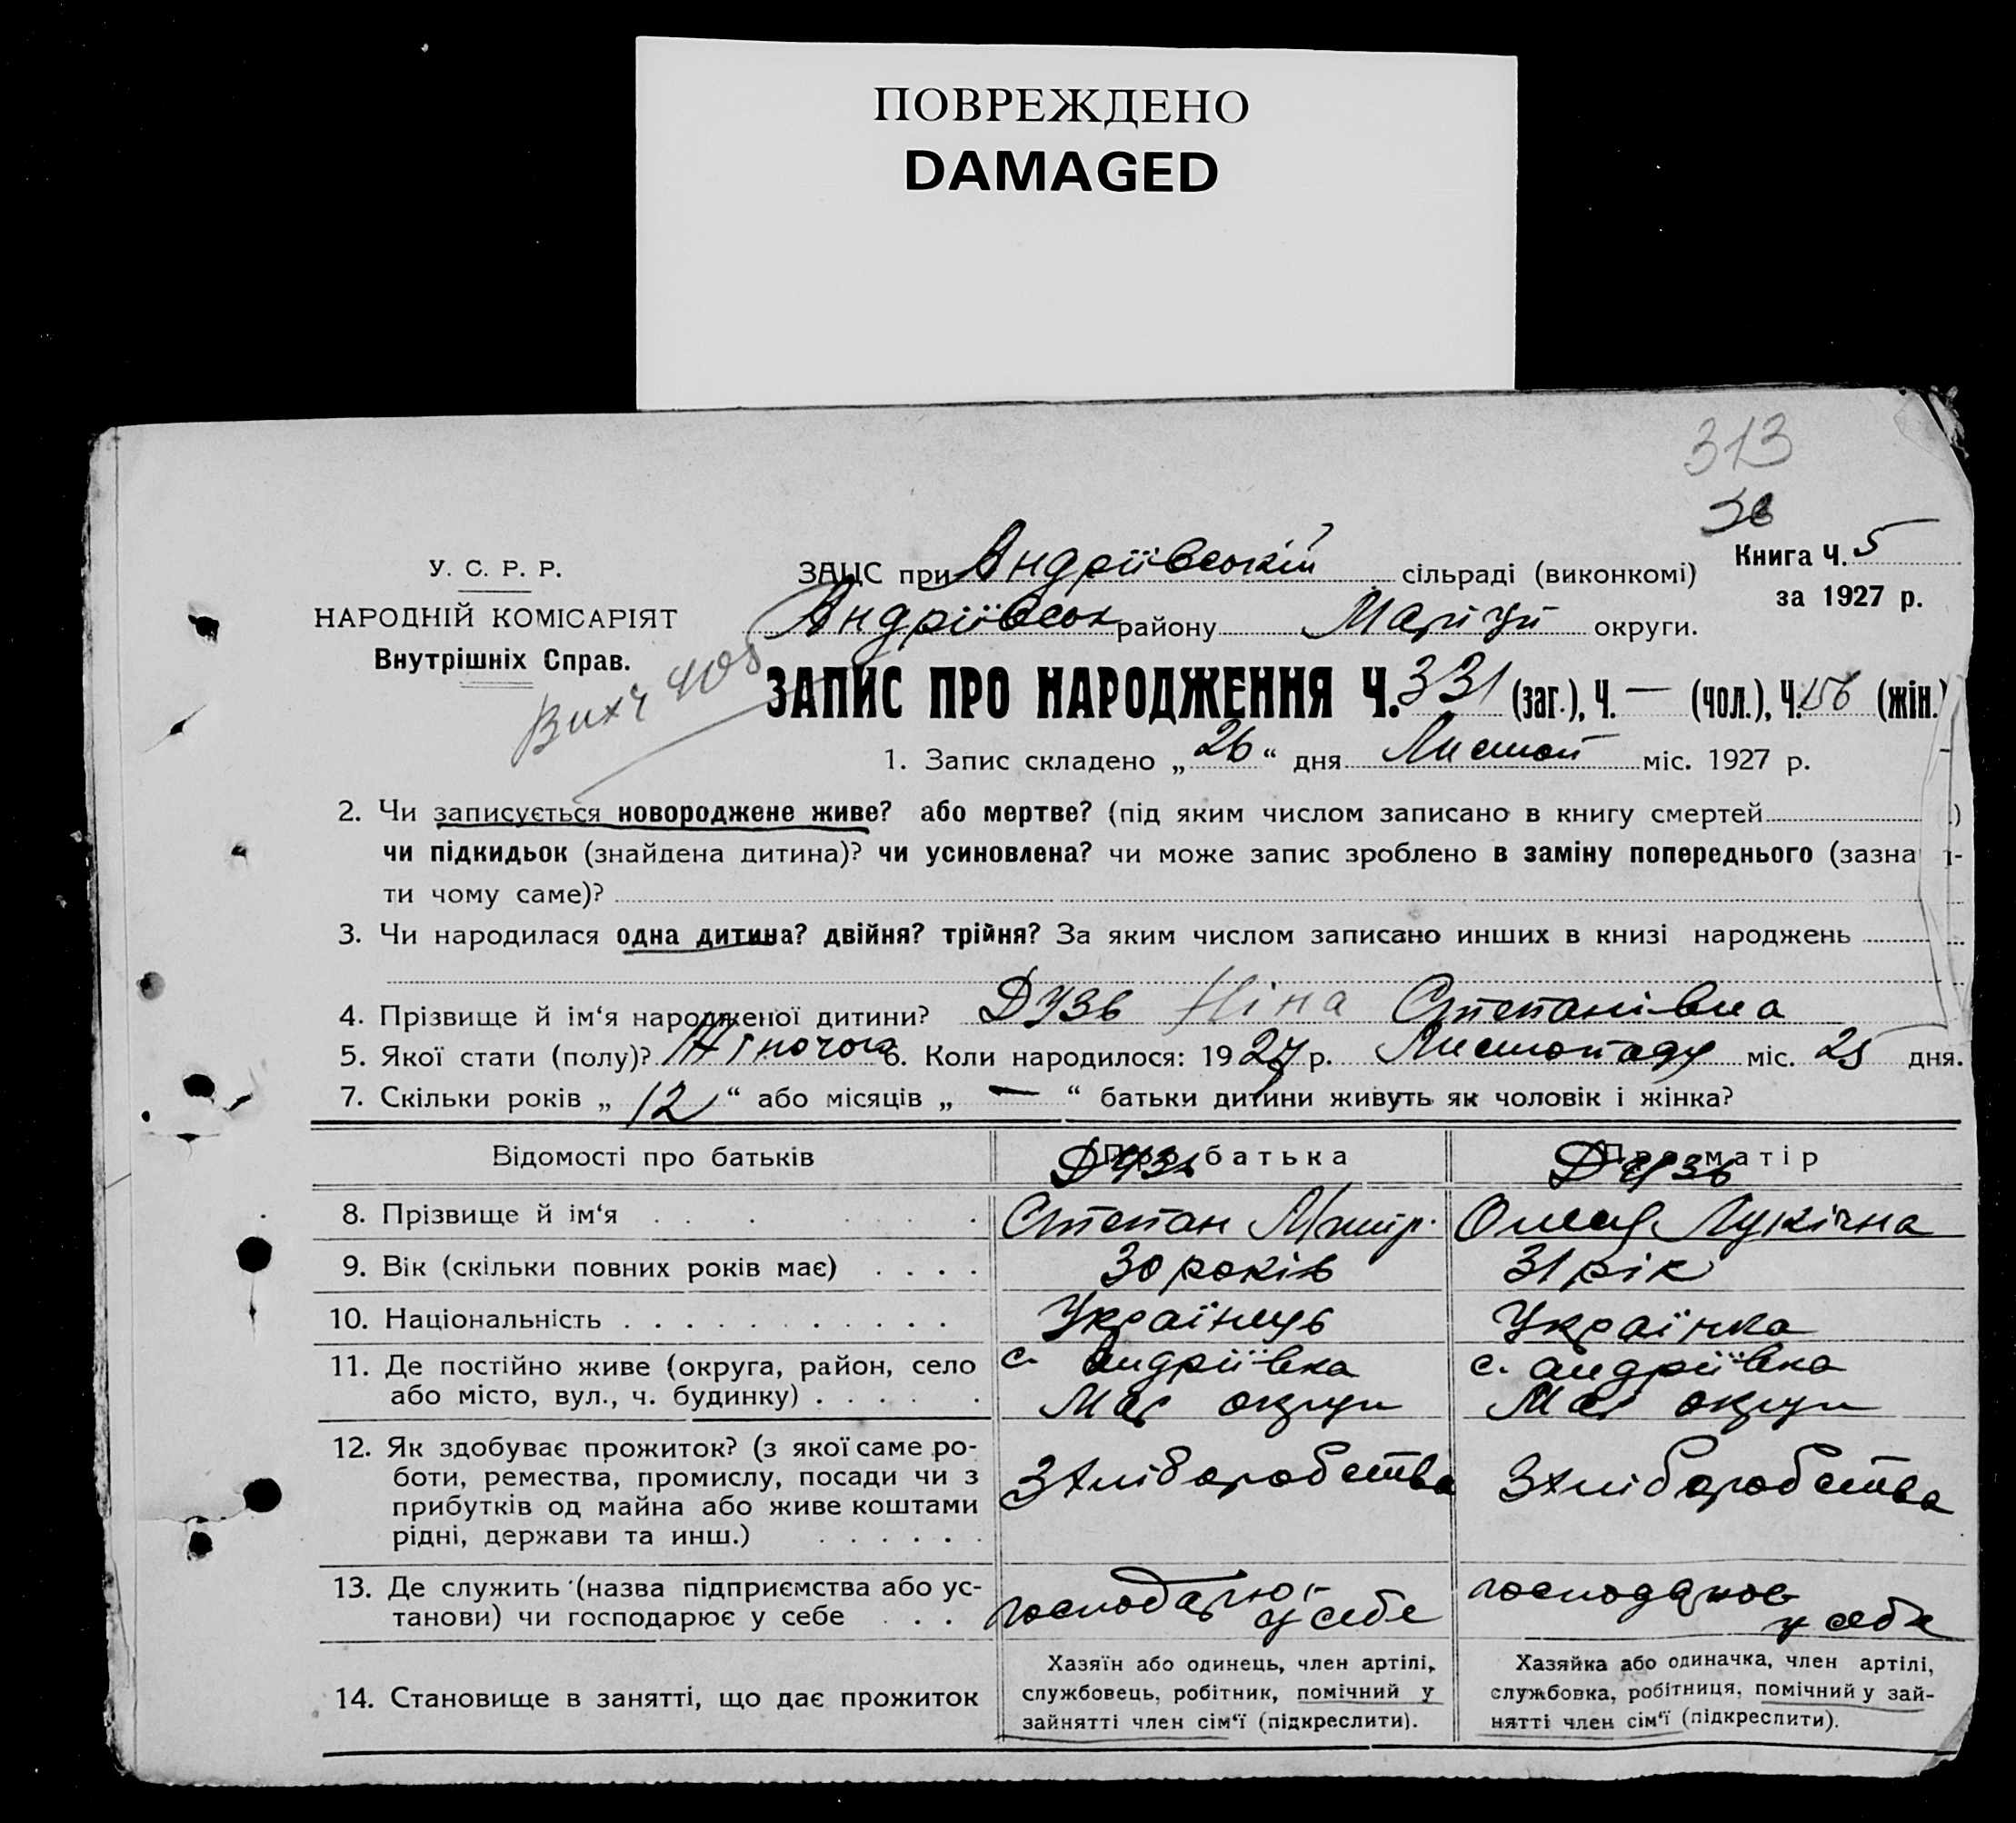 ПОВРЕЖДЕНО
DAMAGED
313
У. С. Р. Р.
НАРОДНІЙ КОМІСАРІЯТ
Внутрішніх Справ.
ЗАЦС при Андріївській сільраді (виконкомі)
Андріївськ району Маріуп округи.
Книга Ч. 5
за 1927 р.
Вих ч 405
ЗАПИС ПРО НАРОДЖЕННЯ Ч. 331 (заг.), Ч. — (чол.), Ч. 156 (жін.)
1. Запис складено „ 26 “ дня Листоп міс. 1927 р.
2. Чи записується новороджене живе? або мертве? (під яким числом записано в книгу смертей )
чи підкидьок (знайдена дитина)? чи усиновлена? чи може запис зроблено в заміну попереднього (зазна и-
ти чому саме)?
3. Чи народилася одна дитина? двійня? трійня? За яким числом записано инших в книзі народжень
4. Прізвище й ім‘я народженої дитини? Дузь Ніна Степанівна
5. Якої стати (полу)? Жіночої 6. Коли народилося: 1927 р. Листопаду міс. 25 дня.
7. Скільки років „ 12 “ або місяців „ — “ батьки дитини живуть як чоловік і жінка?
Відомості про батьків Про батька Про матір
Дузь Дузь
8. Прізвище й ім‘я Степан Дмитр. Лукічна
9. Вік (скільки повних років має) 30 років 31 рік
10. Національність Українець Українка
11. Де постійно живе (округа, район, село с. Андріївка с. Андріївка
або місто, вул., ч. будинку) Мар округи Мар округи
12. Як здобуває прожиток? (з якої саме ро-
боти, ремества, промислу, посади чи з З хліборобства З хліборобства
прибутків од майна або живе коштами
рідні, держави та инш.)
13. Де служить (назва підприємства або ус- господарює господарює
танови) чи господарює у себе у себе у себе
14. Становище в занятті, що дає прожиток
Хазяїн або одинець, член артілі,
службовець, робітник, помічний у
зайнятті член сім‘ї (підкреслити).
Хазяйка або одиначка, член артілі,
службовка, робітниця, помічний у зай-
нятті член сім‘ї (підкреслити).